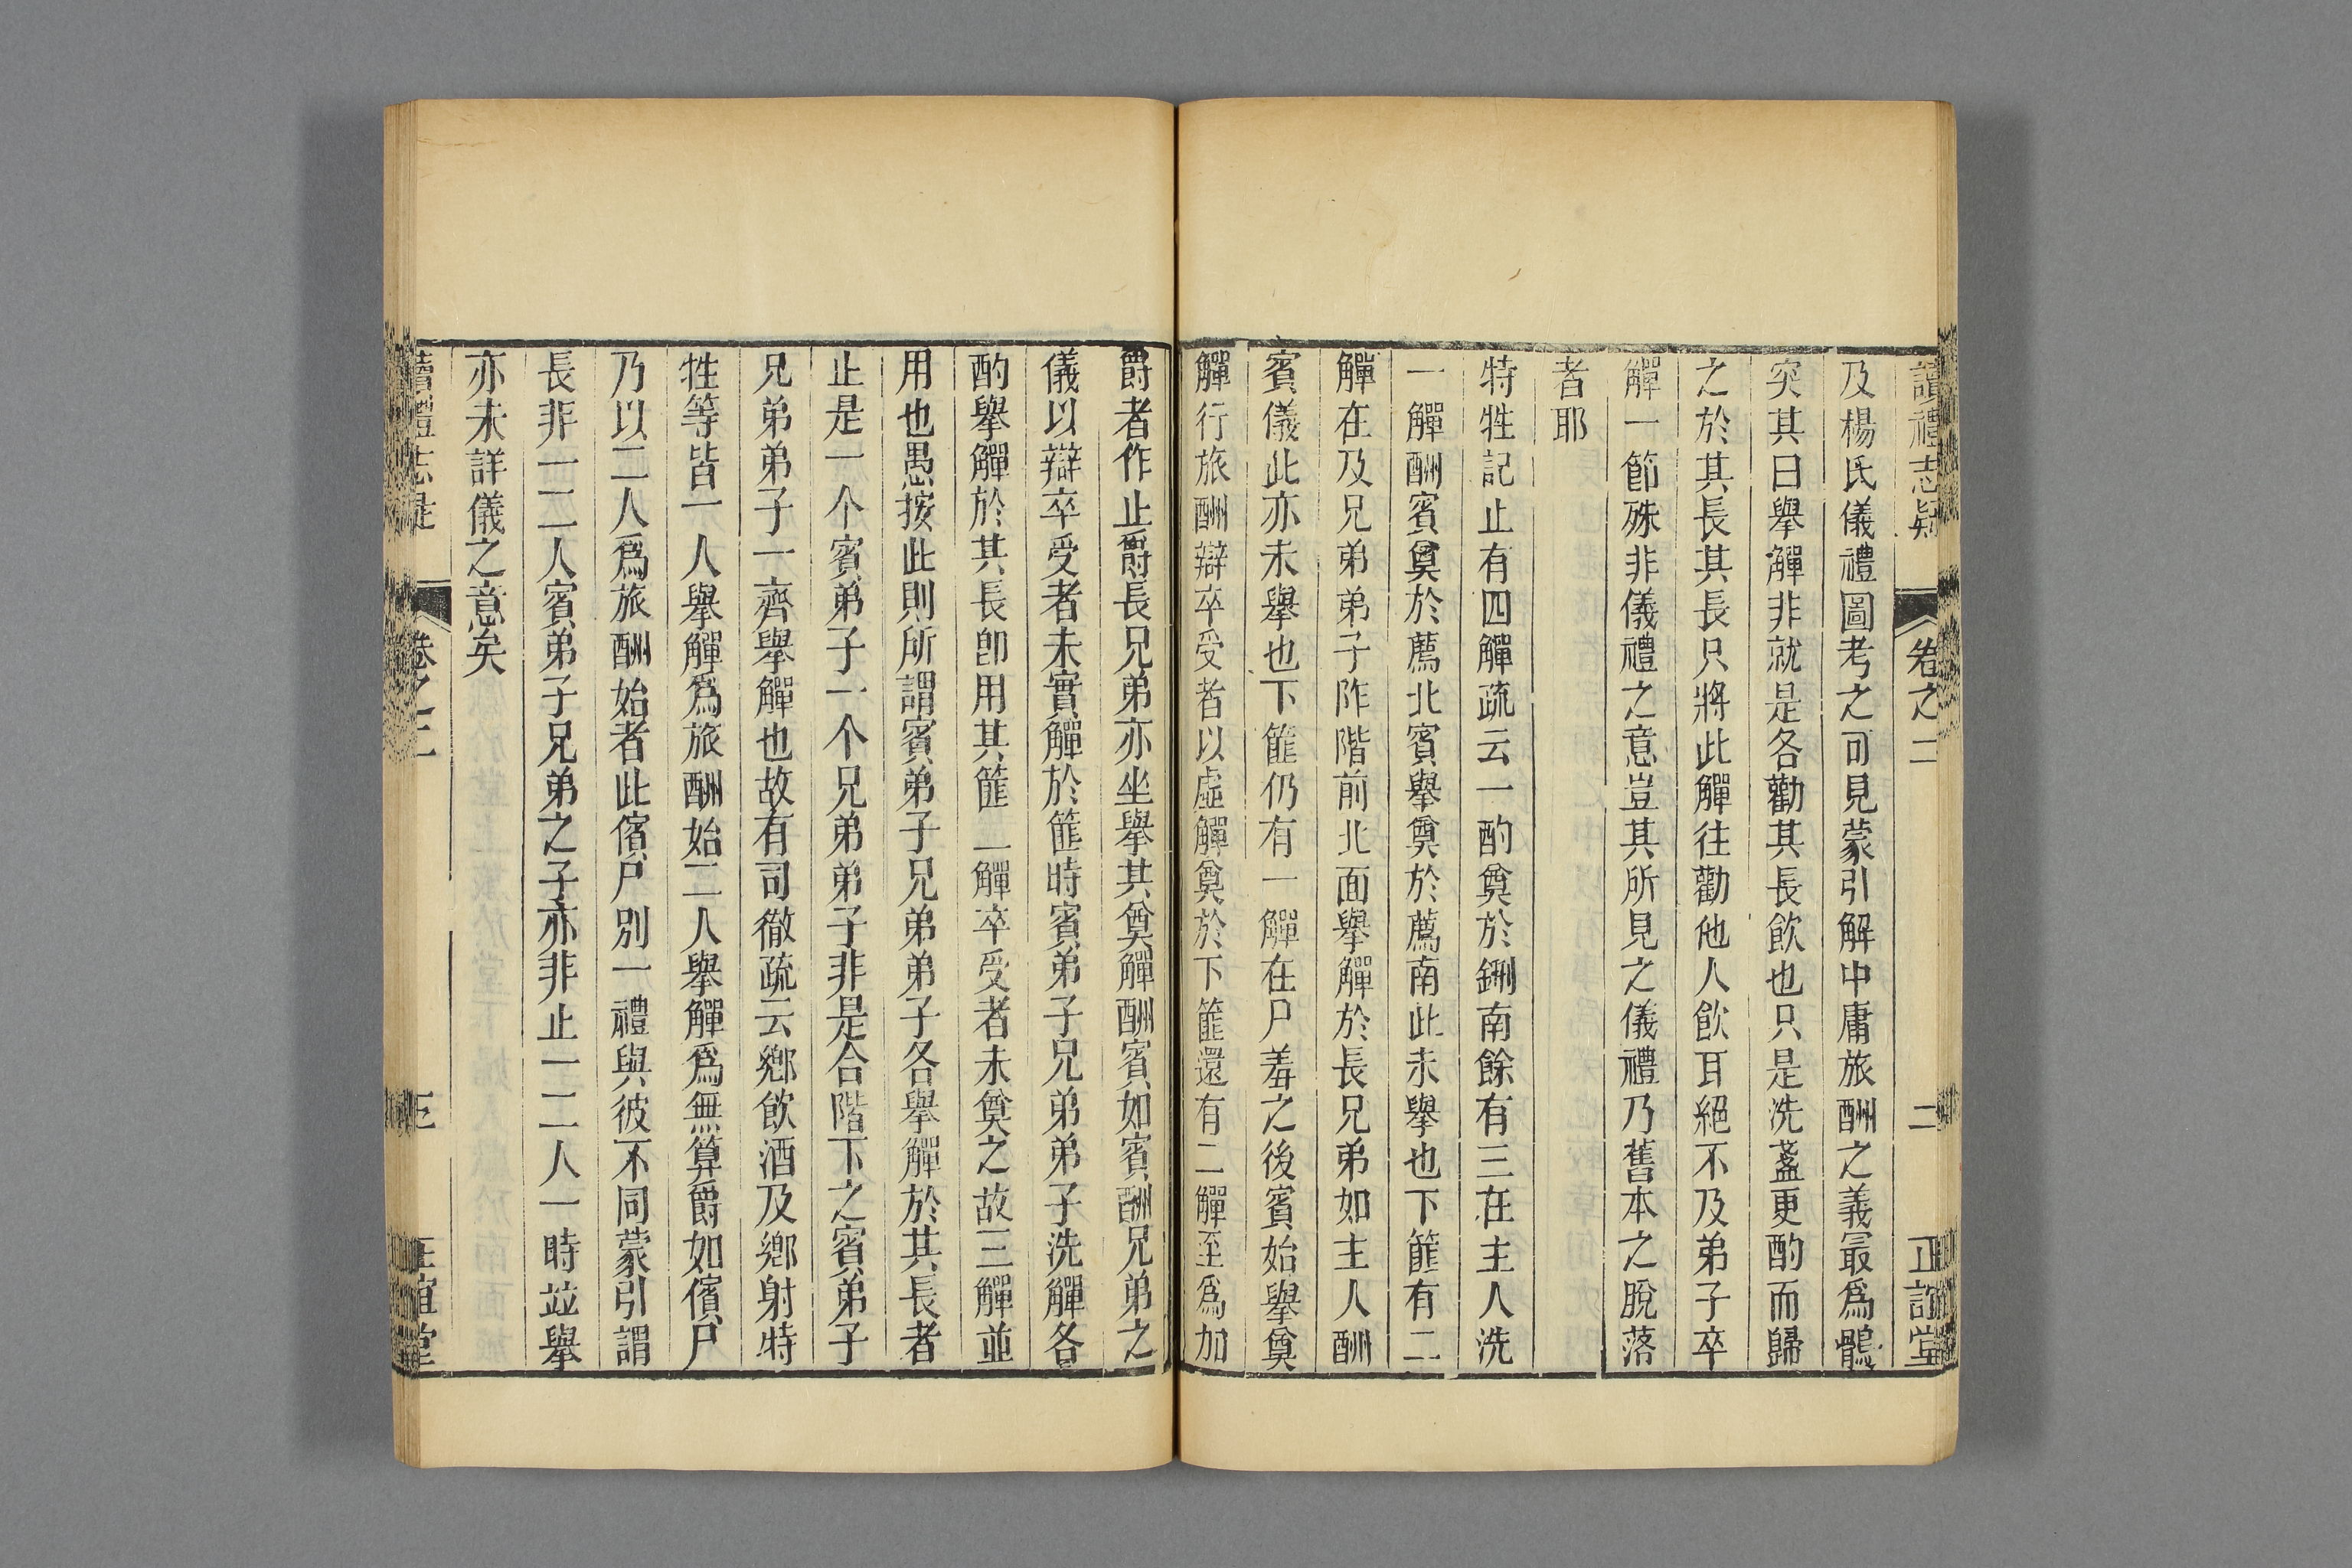 讀禮志疑 卷之二 二 正誼堂
及楊氏儀禮圖考之可見蒙引解中庸旅酬之義最爲鶻
突其曰舉觶非就是各勸其長飲也只是洗盞更酌而歸
之於其長其長只將此觶往勸他人飲耳絕不及弟子卒
觶一節殊非儀禮之意豈其所見之儀禮乃舊本之脫落
者耶
特牲記止有四觶疏云一酌奠於鉶南餘有三在主人洗
一觶酬賓奠於薦北賓舉奠於薦南此未舉也下篚有二
觶在及兄弟弟子阼階前北面舉觶於長兄弟如主人酬
賓儀此亦未舉也下篚仍有一觶在尸羞之後賓始舉奠
觶行旅酬辯卒受者以虛觶奠於下篚還有二觶至爲加
爵者作止爵長兄弟亦坐舉其奠觶酬賓如賓酬兄弟之
儀以辯卒受者未實觶於篚時賓弟子兄弟弟子洗觶各
酌舉觶於其長卽用其篚一觶卒受者未奠之故三觶並
用也愚按此則所謂賓弟子兄弟弟子各舉觶於其長者
止是一个賓弟子一个兄弟弟子非是合階下之賓弟子
兄弟弟子一齊舉觶也故有司徹疏云鄉飲酒及鄉射特
牲等皆一人舉觶爲旅酬始二人舉觶爲無算爵如儐尸
乃以二人爲旅酬始者此儐尸別一禮與彼不同蒙引謂
長非一二人賓弟子兄弟之子亦非止一二人一時並舉
亦未詳儀之意矣
卷之二 三 正誼堂